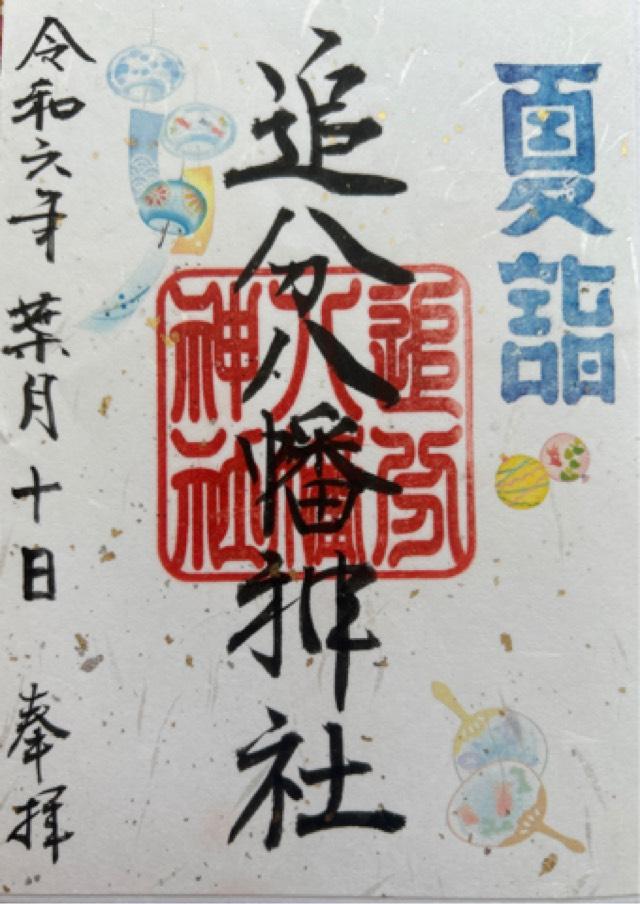 夏詣
追分八幡神社
追分
八幡
神社
令和六年 葉月 十日 奉拝